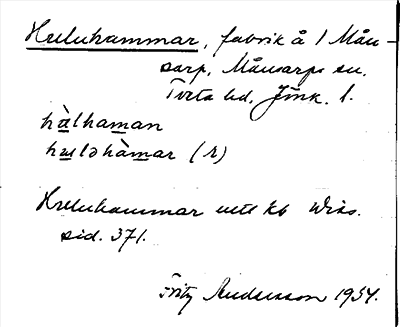 Huluhammar, fabrik å 1 Mån-
sarp, Månsarps sn.
Tveta hd, Jönk. l.
hàlhaman
huləhàmar (r)
Huluhammar utt kb Wiss.
sid. 371.
Fritz Andersson 1934.